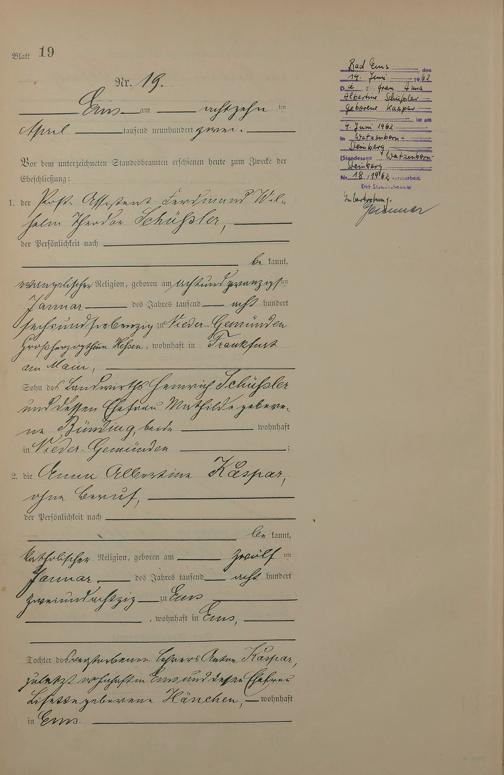 Blatt 19
Nr. 19.
Ems am achtzehn ten
April tausend neunhundert zwei.
Vor dem unterzeichneten Standesbeamten erschienen heute zum Zwecke der
Eheschließung:
1. der Post-Assistent Ferdinand Wil-
helm Theodor Schüßler,
der Persönlichkeit nach
be kannt,
evangelischer Religion, geboren am achtundzwanzigsten
Januar des Jahres tausend acht hundert
sechsundsiebenzig zu Nieder-Gemünden
Großherzogthum Hessen, wohnhaft in Frankfurt
am Main,
Sohn des Landwirths Heinrich Schüßler
und dessen Ehefrau Mathilde gebore-
ne Bünding, beide wohnhaft
in Nieder-Gemünden ;
2. die Anna Albertine Kaspar,
ohne Beruf,
der Persönlichkeit nach
be kannt,
katholischer Religion, geboren am zwölf ten
Januar des Jahres tausend acht hundert
zweiundachtzig zu Ems
, wohnhaft in Ems,
Tochter des verstorbenen Lehrers Anton Kaspar,
zuletzt wohnhaft in Ems und dessen Ehefrau
Lisette geborene Hänchen, wohnhaft
in Ems
Bad Ems, den
14. Juni 1962
Die Frau Anna
Albertine Schüßler
geborene Kaspar
ist am
9. Juni 1962
in Watzenborn-
Steinberg
(Standesamt Watzenborn-
Steinberg
Nr. 18/1962 verstorben.
Der Standesbeamte
In Vertretung: